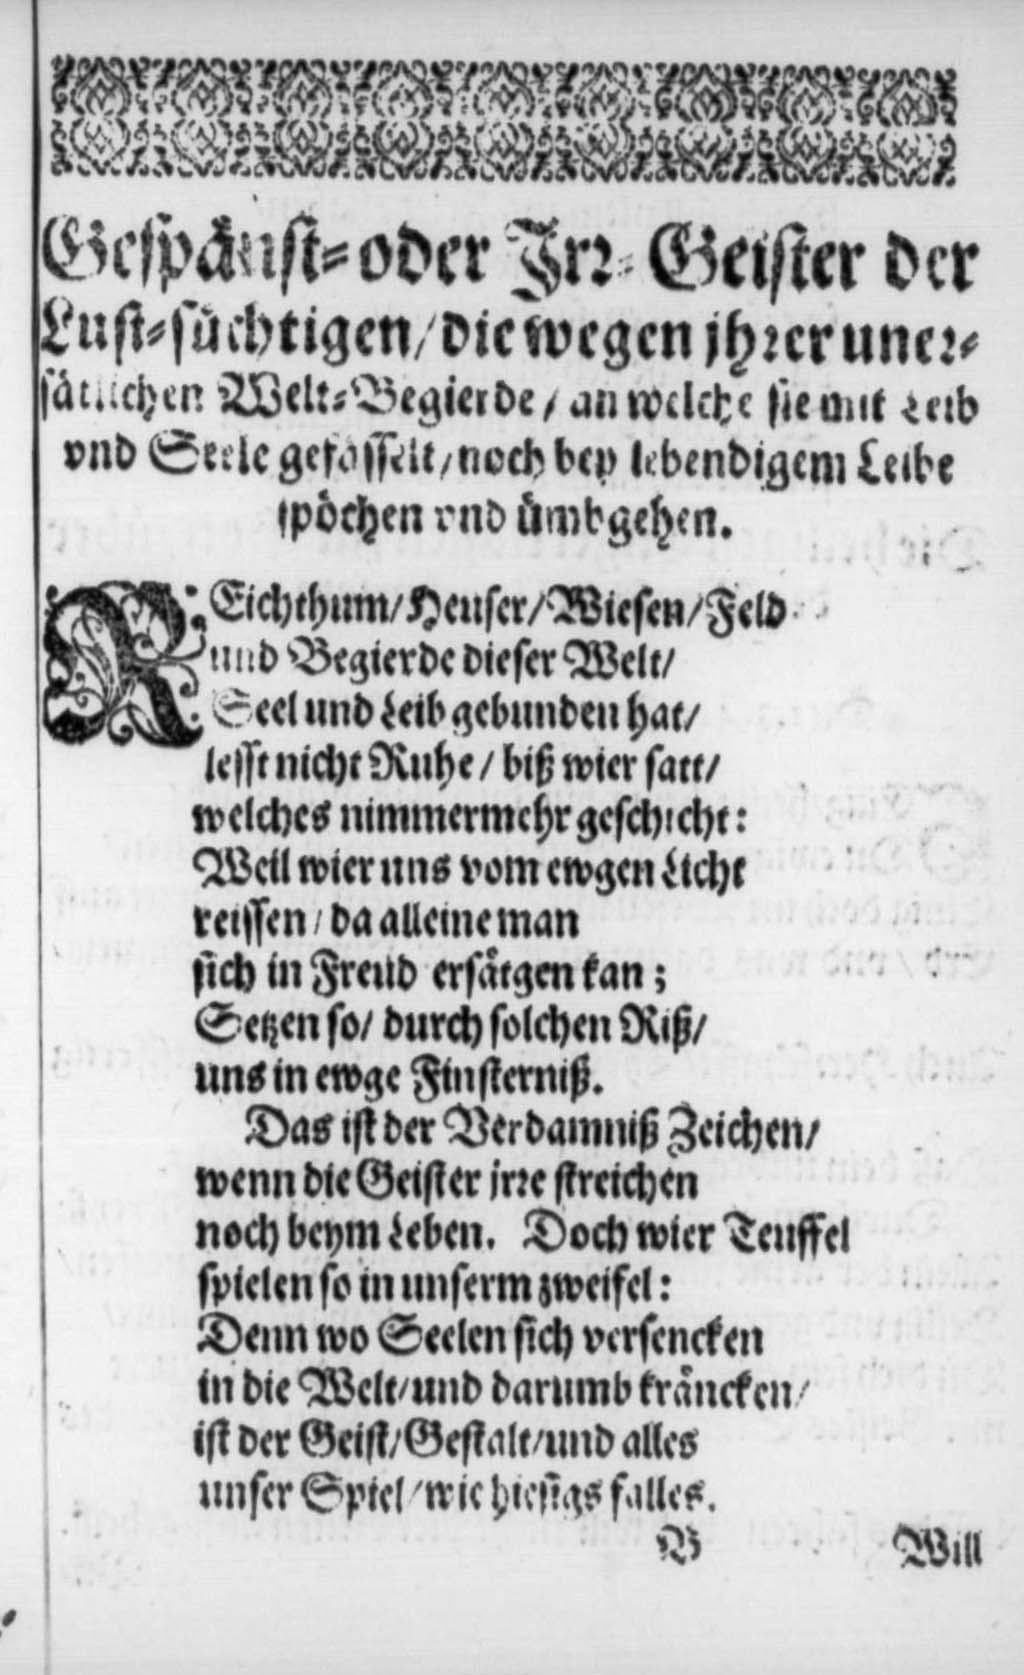 Gespänst-oder Irr-Geister der
Lust-süchtigen/die wegen jhrer uner-
sätlichen Welt-Begierde/an welche sie mit Leib
vnd Seele gefässelt/noch bey lebendigem Leibe
spöchen vnd ümbgehen.
REichthum/Heuser/Wiesen/Feld
und Begierde dieser Welt/
Seel und Leib gebunden hat/
lesst nicht Ruhe/biß wier satt/
welches nimmermehr geschicht:
Weil wier uns vom ewgen Licht
reissen/da alleine man
sich in Freud ersätgen kan;
Setzen so/durch solchen Riß/
uns in ewge Finsterniß.
Das ist der Verdamniß Zeichen/
wenn die Geister jrre streichen
noch beym Leben. Doch wier Teuffel
spielen so in unserm zweifel:
Denn wo Seelen sich versencken
in die Welt/und darumb kräncken/
ist der Geist/Gestalt/und alles
unser Spiel/wie hiesigs falles.
B Will